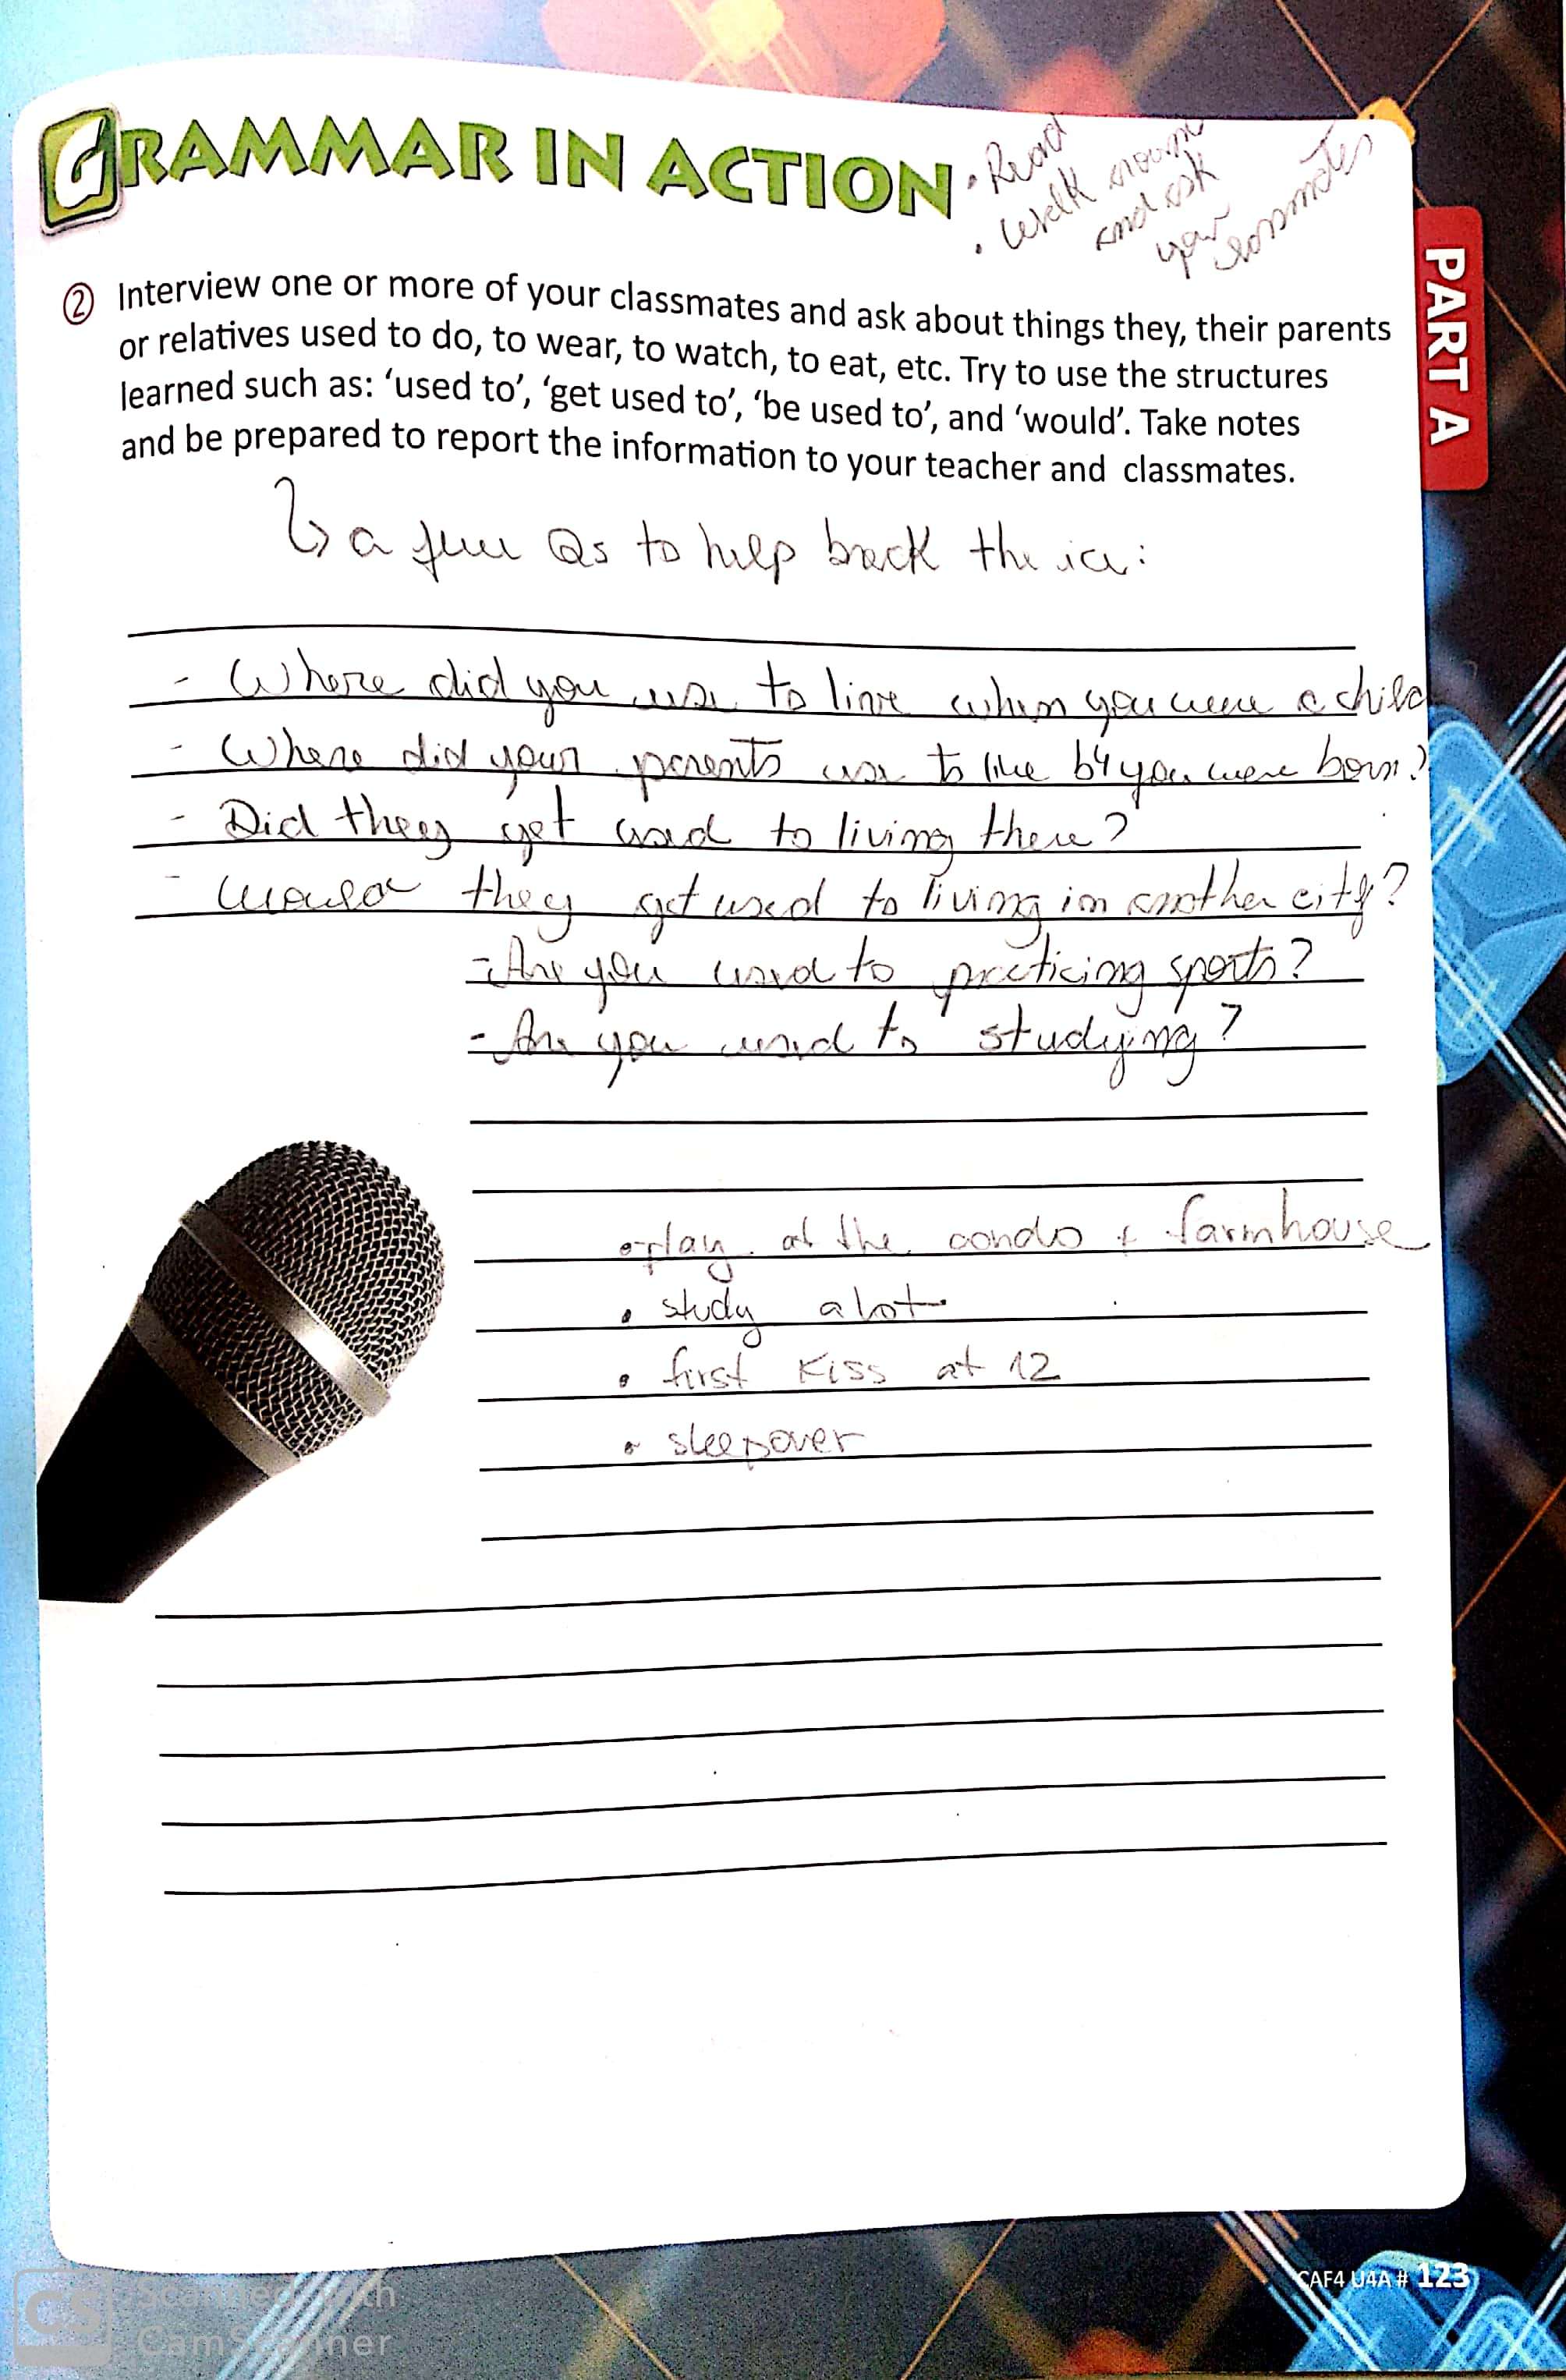 GRAMMAR IN ACTION
• Read
• Walk around
and ask
your
classmates
PART A
② Interview one or more of your classmates and ask about things they, their parents
or relatives used to do, to wear, to watch, to eat, etc. Try to use the structures
learned such as: ‘used to’, ‘get used to’, ‘be used to’, and ‘would’. Take notes
and be prepared to report the information to your teacher and classmates.
↳ a few Qs to help break the ice:
- Where did you use to live when you were a child
- Where did your parents use to live b4 you were born?
- Did they get used to living there?
- Would they get used to living in another city?
- Are you used to practicing sports?
- Are you used to studying?
• play at the condo + farmhouse
• study a lot
• first kiss at 12
• sleepover
CAF4 U4A # 123
CS Scanned with
CamScanner